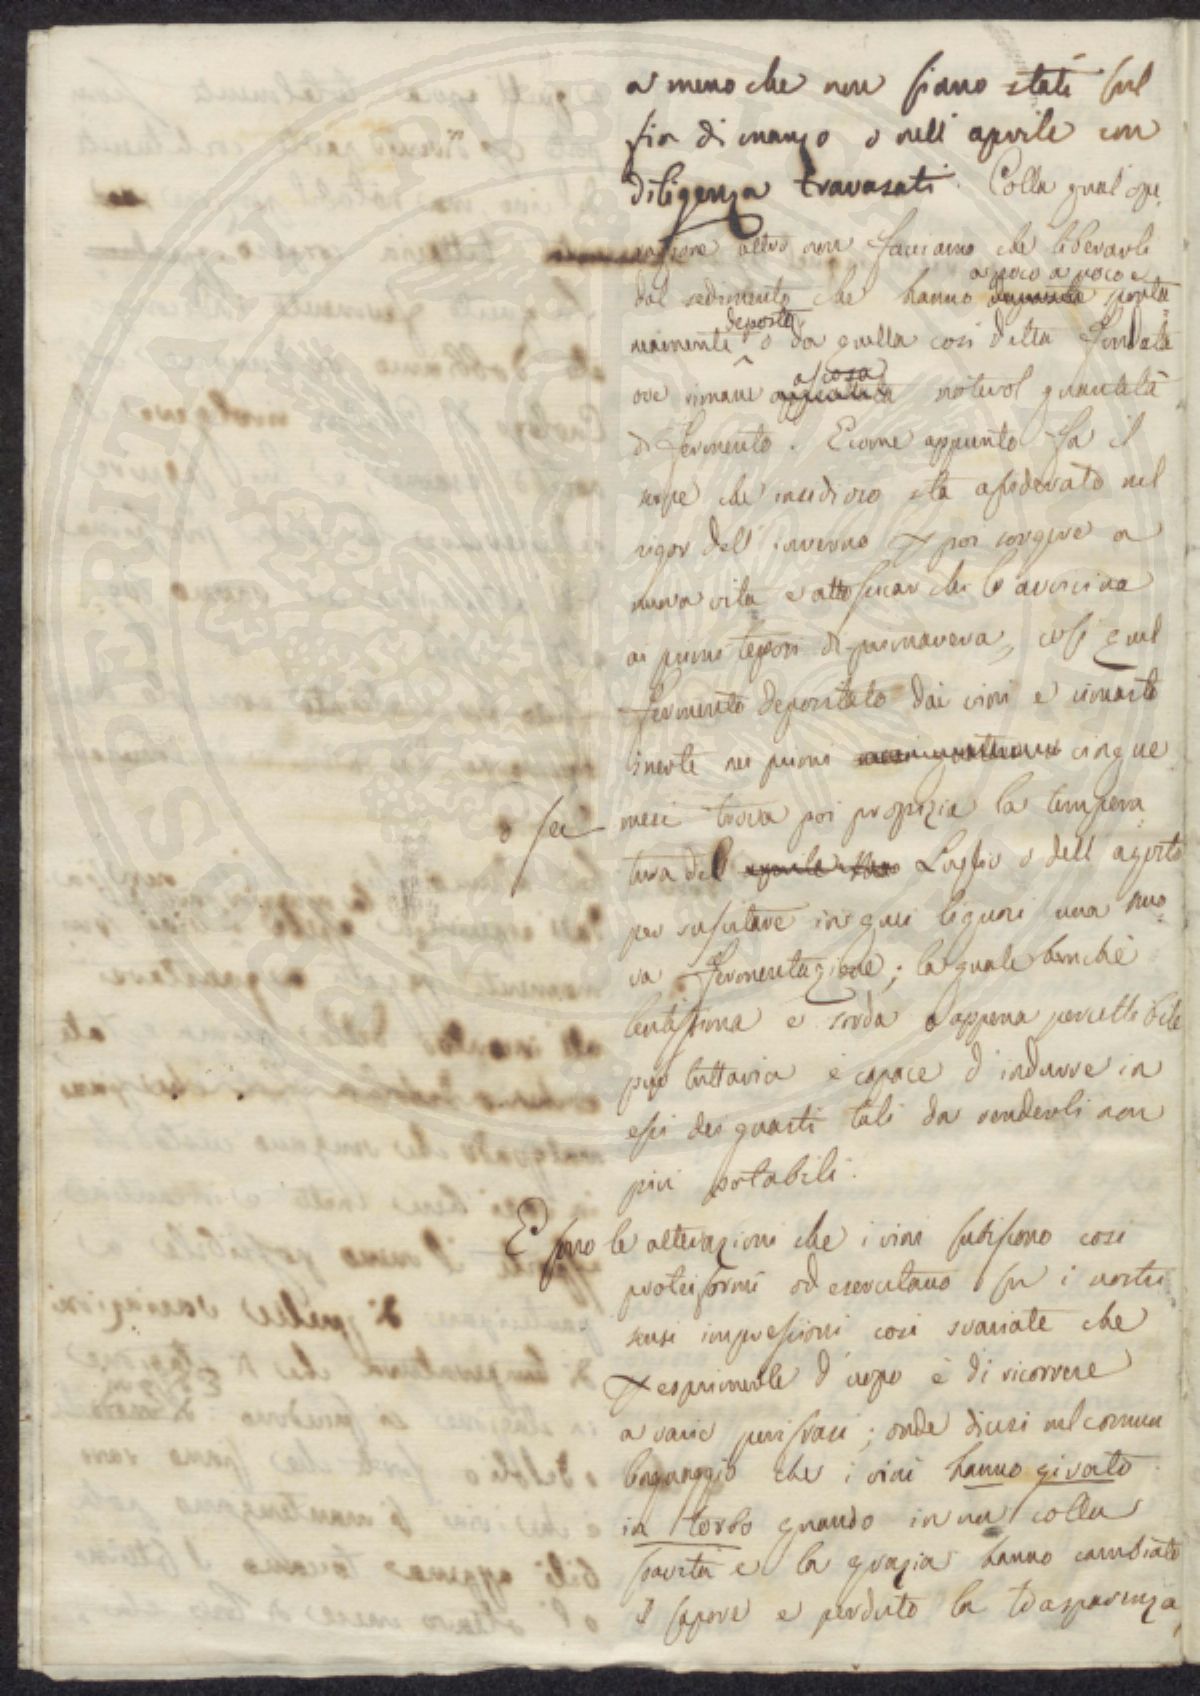 a meno che non siano stati sul
fin di marzo o nell'aprile con
diligenza travasati. Colla qual ope
razione altro non facciamo che liberarli
dal sedimento che hanno a poco a poco e sponta
neamente deposto, o da quella così detta fondata
ove rimane ascosa notevol quantità
di fermento. E come appunto fa il
serpe che insidioso sta assiderato nel
rigor dell'inverno per poi sorgere a
nuova vita e attossicar chi l'avvicina
ai primi tepori di primavera, così quel
fermento depositato dai vini e rimasto
inerte nei primi cinque
o sei mesi trova poi propizia la tempera
tura del Luglio o dell'agosto
per suscitare in quei liquori una nuo
va fermentazione; la quale benchè
lentissima e sorda e appena percettibile
pur tuttavia è capace d'indurre in
essi dei guasti tali da renderli non
più potabili.
E sono le alterazioni che i vini subiscono così
proteiformi ed esercitano su i nostri
sensi impressioni così svariate che
per esprimerle d'uopo è di ricorrere
a varie perifrasi; onde dicesi nel comun
linguaggio che i vini hanno girato
in torbo quando in un colla
pavità e la grazia hanno cambiato
il sapore e perduto la trasparenza,